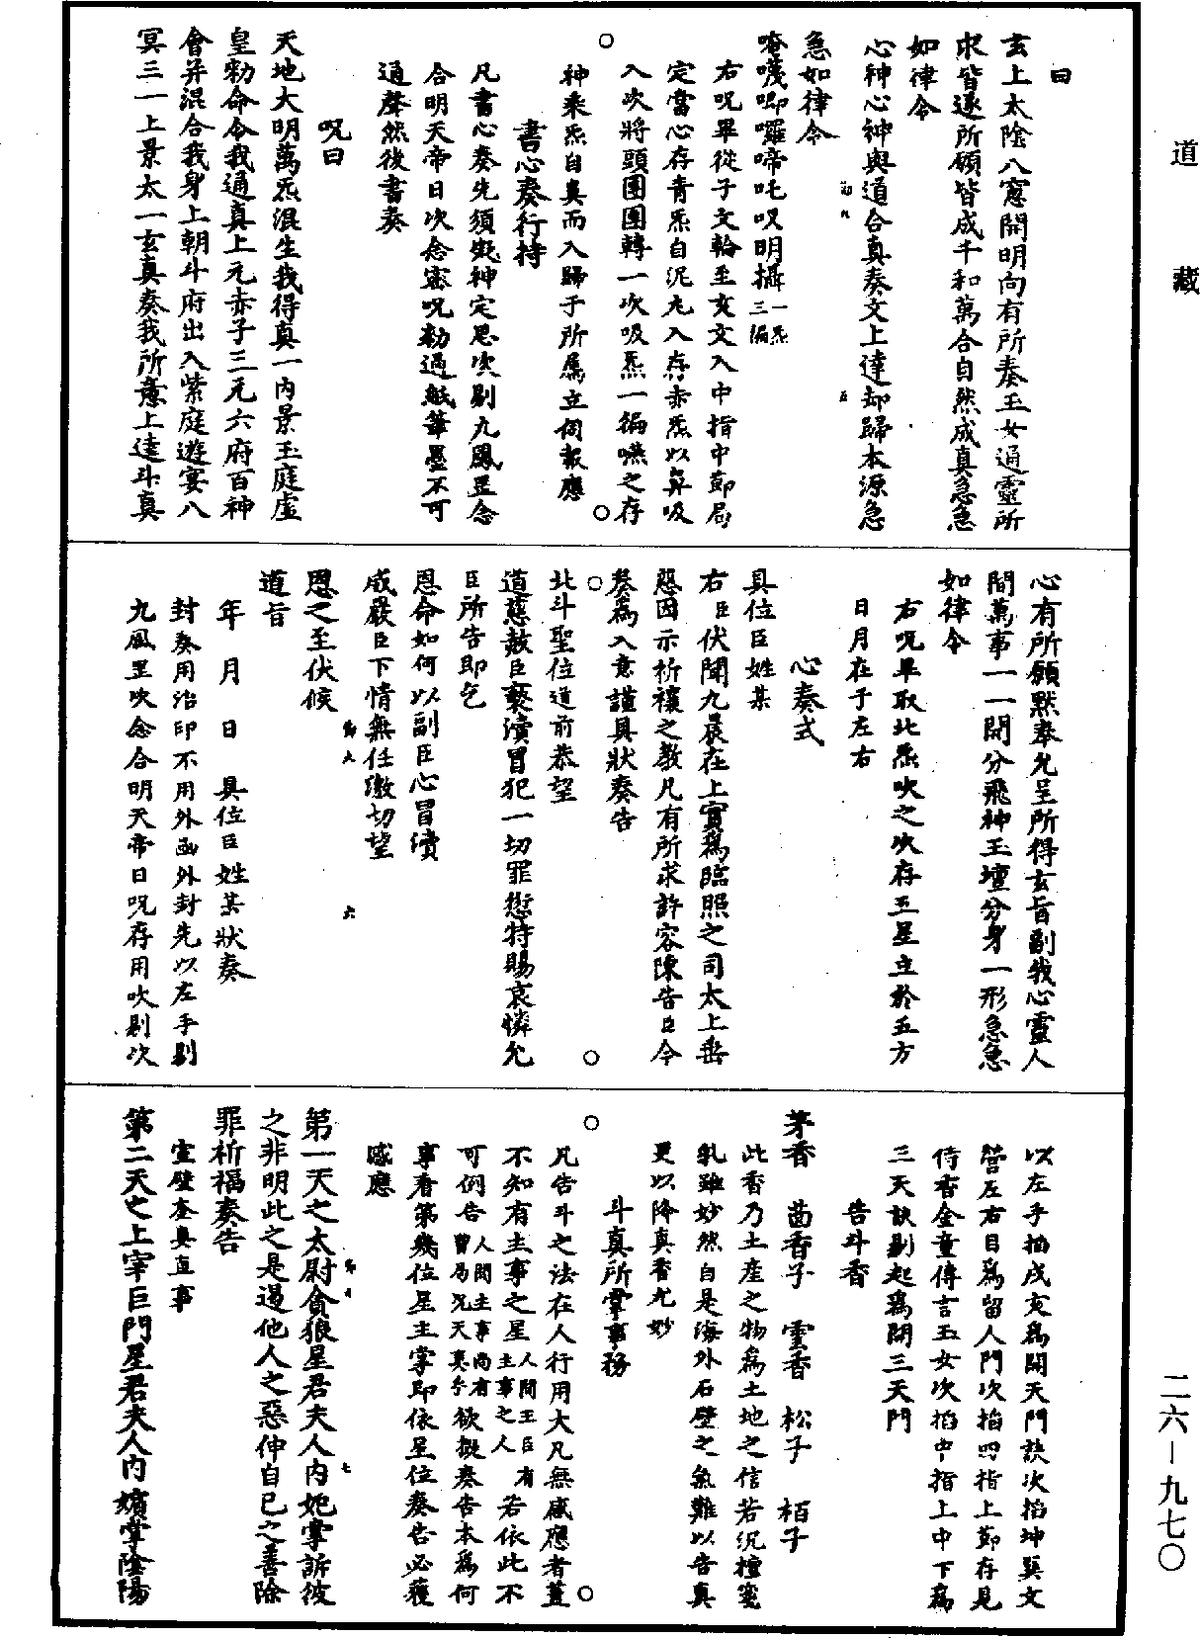 道藏
曰
玄上太陰八窻開明向有所奏玉女通靈所
求皆遂所願皆成千和萬合自然成真急急
如律令
心神心神與道合真奏文上達却歸本源急
急如律令
唵嚩唧囉啼吒㕥明攝一炁三遍
右呪畢從子文輪至亥文入中指中節局
定當心存青炁自泥丸入存赤炁以鼻吸
入次將頭團團轉一次吸炁一徧嚥之存
神乘炁自真而入歸于所屬立伺報應
書心奏行持
凡書心奏先須凝神定思次剔九鳳罡念
合明天帝日次念密呪勑過紙筆墨不可
通聲然後書奏
呪曰
天地大明萬炁混生我得真一內景玉庭虛
皇勑命令我通真上元赤子三元六府百神
會并混合我身上朝斗府出入紫庭遊宴八
冥三一上景太一玄真奏我所意上達斗真
心有所願默奉允呈所得玄旨副我心靈人
間萬事一一開分飛神玉壇分身一形急急
如律令
右呪畢取北炁吹之次存五星立於五方
日月在于左右
心奏式
具位臣姓某
右臣伏聞九晨在上實爲臨照之司太上垂
慈因示祈禳之教凡有所求許容陳告臣今
奏爲入意謹具狀奏告
北斗聖位道前恭望
道慈赦臣褻瀆冒犯一切罪愆特賜哀憐允
臣所告即乞
恩命如何以副臣心冒瀆
威嚴臣下情無任激切望
恩之至伏候
道旨
年月日具位臣姓某狀奏
封奏用治印不用外函外封先以左手剔
九鳳罡次念合明天帝日呪存用吹剔次
以左手掐戌亥爲開天門訣次掐坤巽文
營左右目爲留人門次掐四指上節存見
侍香金童傳言玉女次掐中指上中下爲
三天訣剔起爲開三天門
告斗香
茅香 茴香子 雲香 松子 栢子
此香乃土產之物爲土地之信若沉檀蜜
乳雖妙然自是海外石壁之氣難以告真
更以降真香尤妙
斗真所掌事務
凡告斗之法在人行用大凡無感應者蓋
不知有主事之星人間王臣有主事之人若依此不
可例告人間主事尚有曹局况天真乎欲擬奏告本爲何
事看第幾位星主掌即依星位奏告必獲
感應
第一天之太尉貪狼星君夫人內妃掌訴彼
之非明此之是遏他人之惡伸自己之善除
罪祈福奏告
室壁奎婁直事
第二天之上宰巨門星君夫人內嬪掌陰陽
二六—九七〇